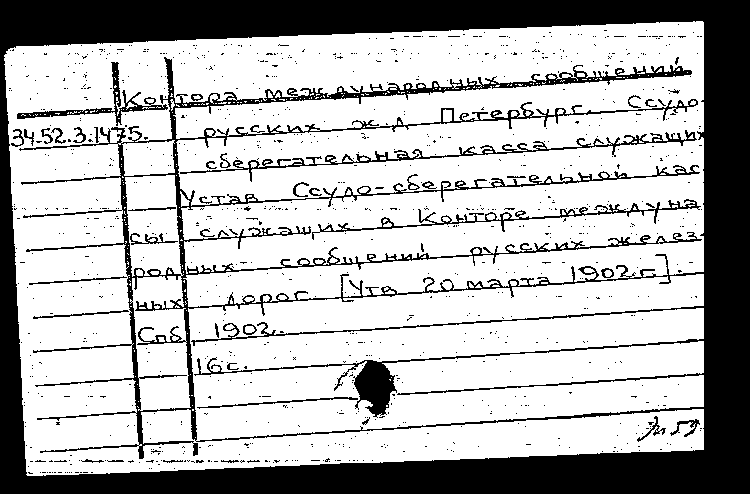 Контора международных сообщений
34.52.3.1475. русских ж.д Петербург. Ссудо-
сберегательная касса служащих
Устав Ссудо-сберегательной кас
сы служащих в Конторе междуна
родных сообщений русских желез-
ных дорог. [Утв 20 марта 1902 г.].
Спб, 1902.
16 с.